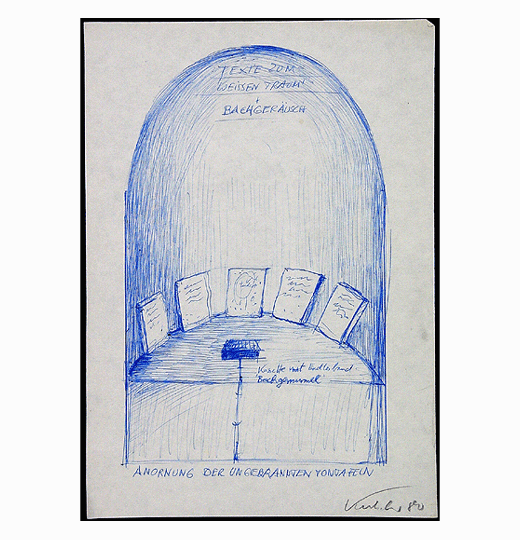 TEXTE ZUM
WEISSEN TRAUM
+
BACHGERÄUSCH
mit Endlosband
Bachgemurmel
ANORNUNG DER UNGEBRANNTEN TONTAFELN
80